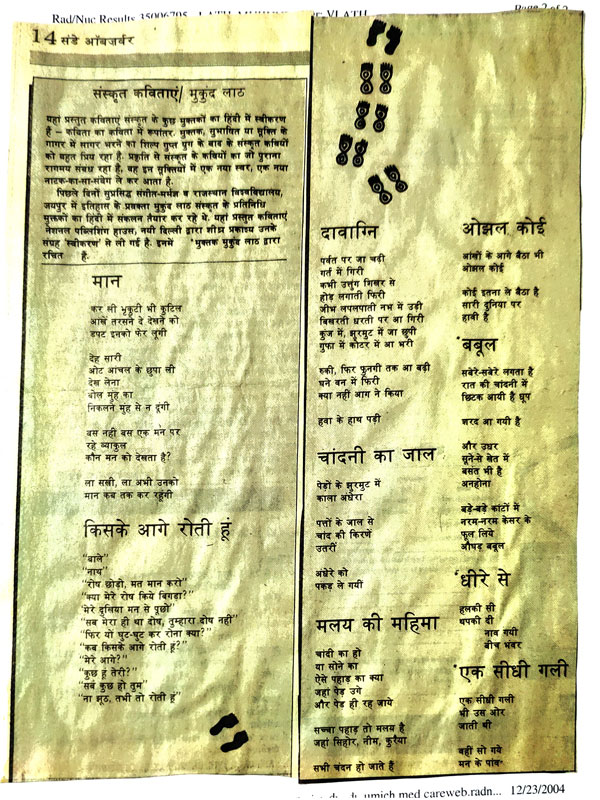 Rad/Nuc Results 35006795
Page 2 of 2
14 संडे ऑब्जर्वर
संस्कृत कविताएं/ मुकुंद लाठ
यहां प्रस्तुत कविताएं संस्कृत के कुछ मुक्तकों का हिंदी में स्वीकरण
हैं – कविता का कविता में रूपांतर. मुक्तक, सुभाषित या सूक्ति के
गागर में सागर भरने का शिल्प गुप्त युग के बाद के संस्कृत कवियों
को बहुत प्रिय रहा है. प्रकृति से संस्कृत के कवियों का जो पुराना
रागमय संबंध रहा है, वह इन सूक्तियों में एक नया स्वर, एक नया
नाटक-का-सा-संवेग ले कर आता है.
पिछले दिनों सुप्रसिद्ध संगीत-मर्मज्ञ व राजस्थान विश्वविद्यालय,
जयपुर में इतिहास के प्रवक्ता मुकुंद लाठ संस्कृत के प्रतिनिधि
मुक्तकों का हिंदी में संकलन तैयार कर रहे थे. यहां प्रस्तुत कविताएं
नेशनल पब्लिशिंग हाउस, नयी दिल्ली द्वारा शीघ्र प्रकाश्य उनके
संग्रह 'स्वीकरण' से ली गई हैं. इनमें * मुक्तक मुकुंद लाठ द्वारा
रचित हैं.
मान
कर ली भृकुटी भी कुटिल
आंखें तरसने दे देखने को
डपट इनको फेर लूंगी
देह सारी
ओट आंचल के छुपा ली
देख लेना
बोल मुंह का
निकलने मुंह से न दूंगी
बस नहीं बस एक मन पर
रहे व्याकुल
कौन मन को देखता है?
ला सखी, ला अभी उनको
मान कब तक कर रहूंगी
किसके आगे रोती हूं
"बाले"
"नाथ"
"रोष छोड़ो, मत मान करो"
"क्या मेरे रोष किये बिगड़ा?"
"मेरे दुखिया मन से पूछो"
"सब मेरा ही था दोष, तुम्हारा दोष नहीं"
"फिर यों घुट-घुट कर रोना क्या?"
"कब किसके आगे रोती हूं?"
"मेरे आगे?"
"कुछ हूं तेरी?"
"सब कुछ हो तुम"
"ना झूठ, तभी तो रोती हूं"
दावाग्नि
पर्वत पर जा चढ़ी
गर्त में गिरी
कभी उत्तुंग शिखर से
होड़ लगाती फिरी
जीभ लपलपाती नभ में उड़ी
बिखरती धरती पर आ गिरी
कुंज में, झुरमुट में जा छुपी
गुफा में कोटर में आ भरी
रुकी, फिर फुनगी तक आ बढ़ी
घने वन में फिरी
क्या नहीं आग ने किया
हवा के हाथ पड़ी
चांदनी का जाल
पेड़ों के झुरमुट में
काला अंधेरा
पत्तों के जाल से
चांद की किरणें
उतरीं
अंधेरे को
पकड़ ले गयीं
मलय की महिमा
चांदी का हो
या सोने का
ऐसे पहाड़ का क्या
जहां पेड़ उगे
और पेड़ ही रह जाये
सच्चा पहाड़ तो मलय है
जहां सिहोर, नीम, कुरैया
सभी चंदन हो जाते हैं
ओझल कोई
आंखों के आगे बैठा भी
ओझल कोई
कोई इतना ले बैठा है
सारी दुनिया पर
हावी है
*बबूल
सबेरे-सबेरे लगता है
रात की चांदनी में
छिटक आयी है धूप
शरद आ गयी है
और उधर
सूने-से खेत में
बसंत भी है
अनहोना
बड़े-बड़े कांटों में
नरम-नरम केसर के
फूल लिये
औघड़ बबूल
*धीरे से
हलकी सी
थपकी दी
नाव गयी
बीच भंवर
*एक सीधी गली
एक सीधी गली
भी उस ओर
जाती थी
वहीं सो गये
मन के पांव
umich med careweb.radn... 12/23/2004